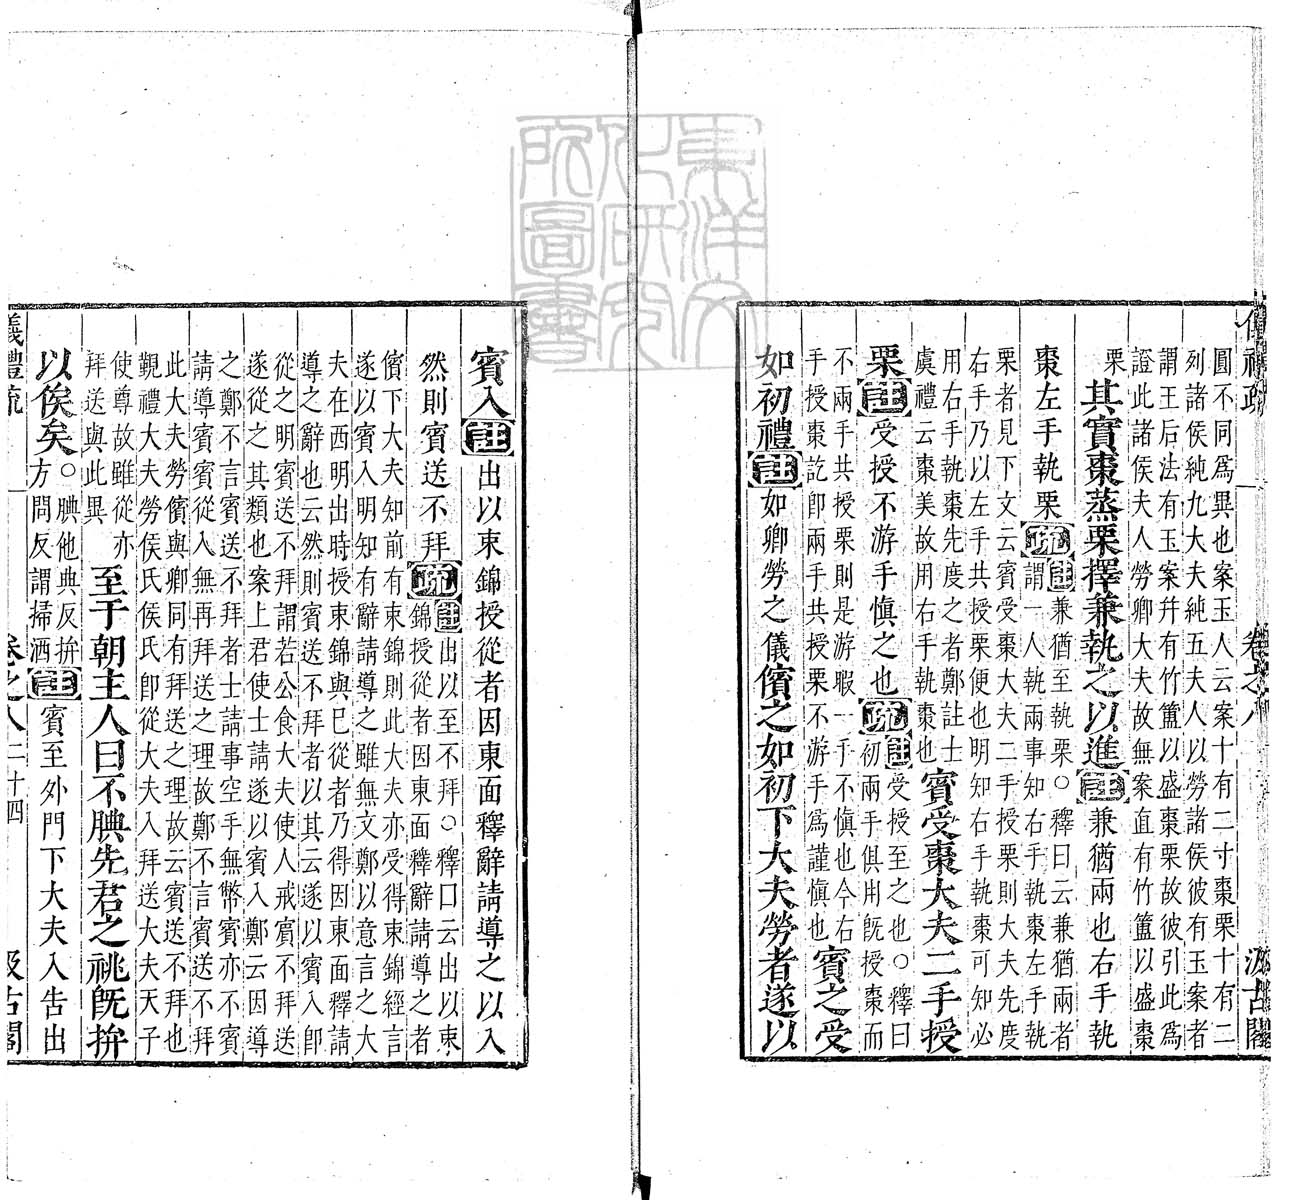 圓不同爲異也案玉人云案十有二寸棗栗十有二
列諸侯純九大夫純五夫人以勞諸侯彼有玉案者
謂王后法有玉案幷有竹簠以盛棗栗故彼引此爲
證此諸侯夫人勞卿大夫故無案直有竹簠以盛棗
栗
其實棗蒸栗擇兼執之以進註兼猶兩也右手執
棗左手執栗疏註兼猶至執栗○釋曰云兼猶兩者
謂一人執兩事知右手執棗左手執
栗者見下文云賓受棗大夫二手授栗則大夫先度
右手乃以左手共授栗便也明知右手執棗可知必
用右手執棗先度之者鄭註士
虞禮云棗美故用右手執棗也
賓受棗大夫二手授
栗註受授不游手慎之也疏註受授至之也○釋曰
初兩手俱用旣授棗而
不兩手共授栗則是游暇一手不慎也今右
手授棗訖卽兩手共授栗不游手爲謹慎也
賓之受
如初禮註如卿勞之儀儐之如初下大夫勞者遂以
賓入註出以束錦授從者因東面釋辭請導之以入
然則賓送不拜疏註出以至不拜○釋曰云出以束
錦授從者因東面釋辭請導之者
儐下大夫知前有束錦則此大夫亦受得束錦經言
遂以賓入明知有辭請導之雖無文鄭以意言之大
夫在西明出時授束錦與已從者乃得因東面釋請
導之辭也云然則賓送不拜者以其云遂以賓入卽
從之明賓送不拜謂若公食大夫使人戒賓不拜送
遂從之其類也案上君使士請遂以賓入鄭云因導
之鄭不言賓送不拜者士請事空手無幣賓亦不賓
請導賓賓從入無再拜送之理故鄭不言賓送不拜
此大夫勞儐與卿同有拜送之理故云賓送不拜也
覲禮大夫勞侯氏侯氏卽從大夫入拜送大夫天子
使尊故雖從亦
拜送與此異
至于朝主人曰不腆先君之祧旣拚
以俟矣○腆他典反拚
方問反謂掃洒
註賓至外門下大夫入告出
儀禮疏 卷之八 二十四 汲古閣